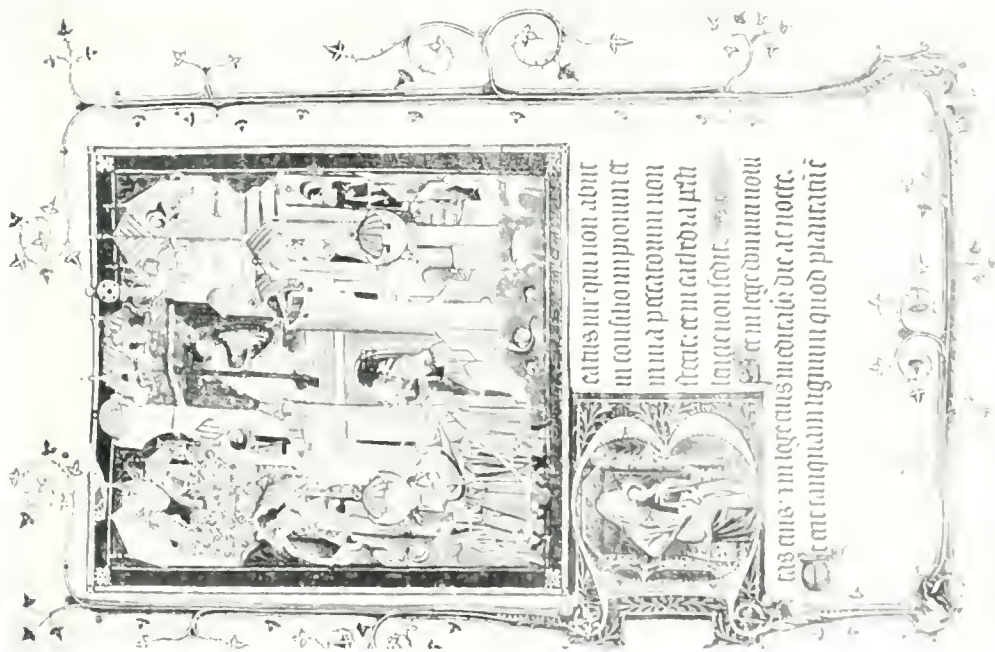 eatus uir qui non abiit
in consilio impiorum et
in uia peccatorum non
stetit et in cathedra pesti
lencie non sedit.
Set in lege domini uolun
tas eius et in lege eius meditabitur die ac nocte.
Et erit tanquam lignum quod plantatum est